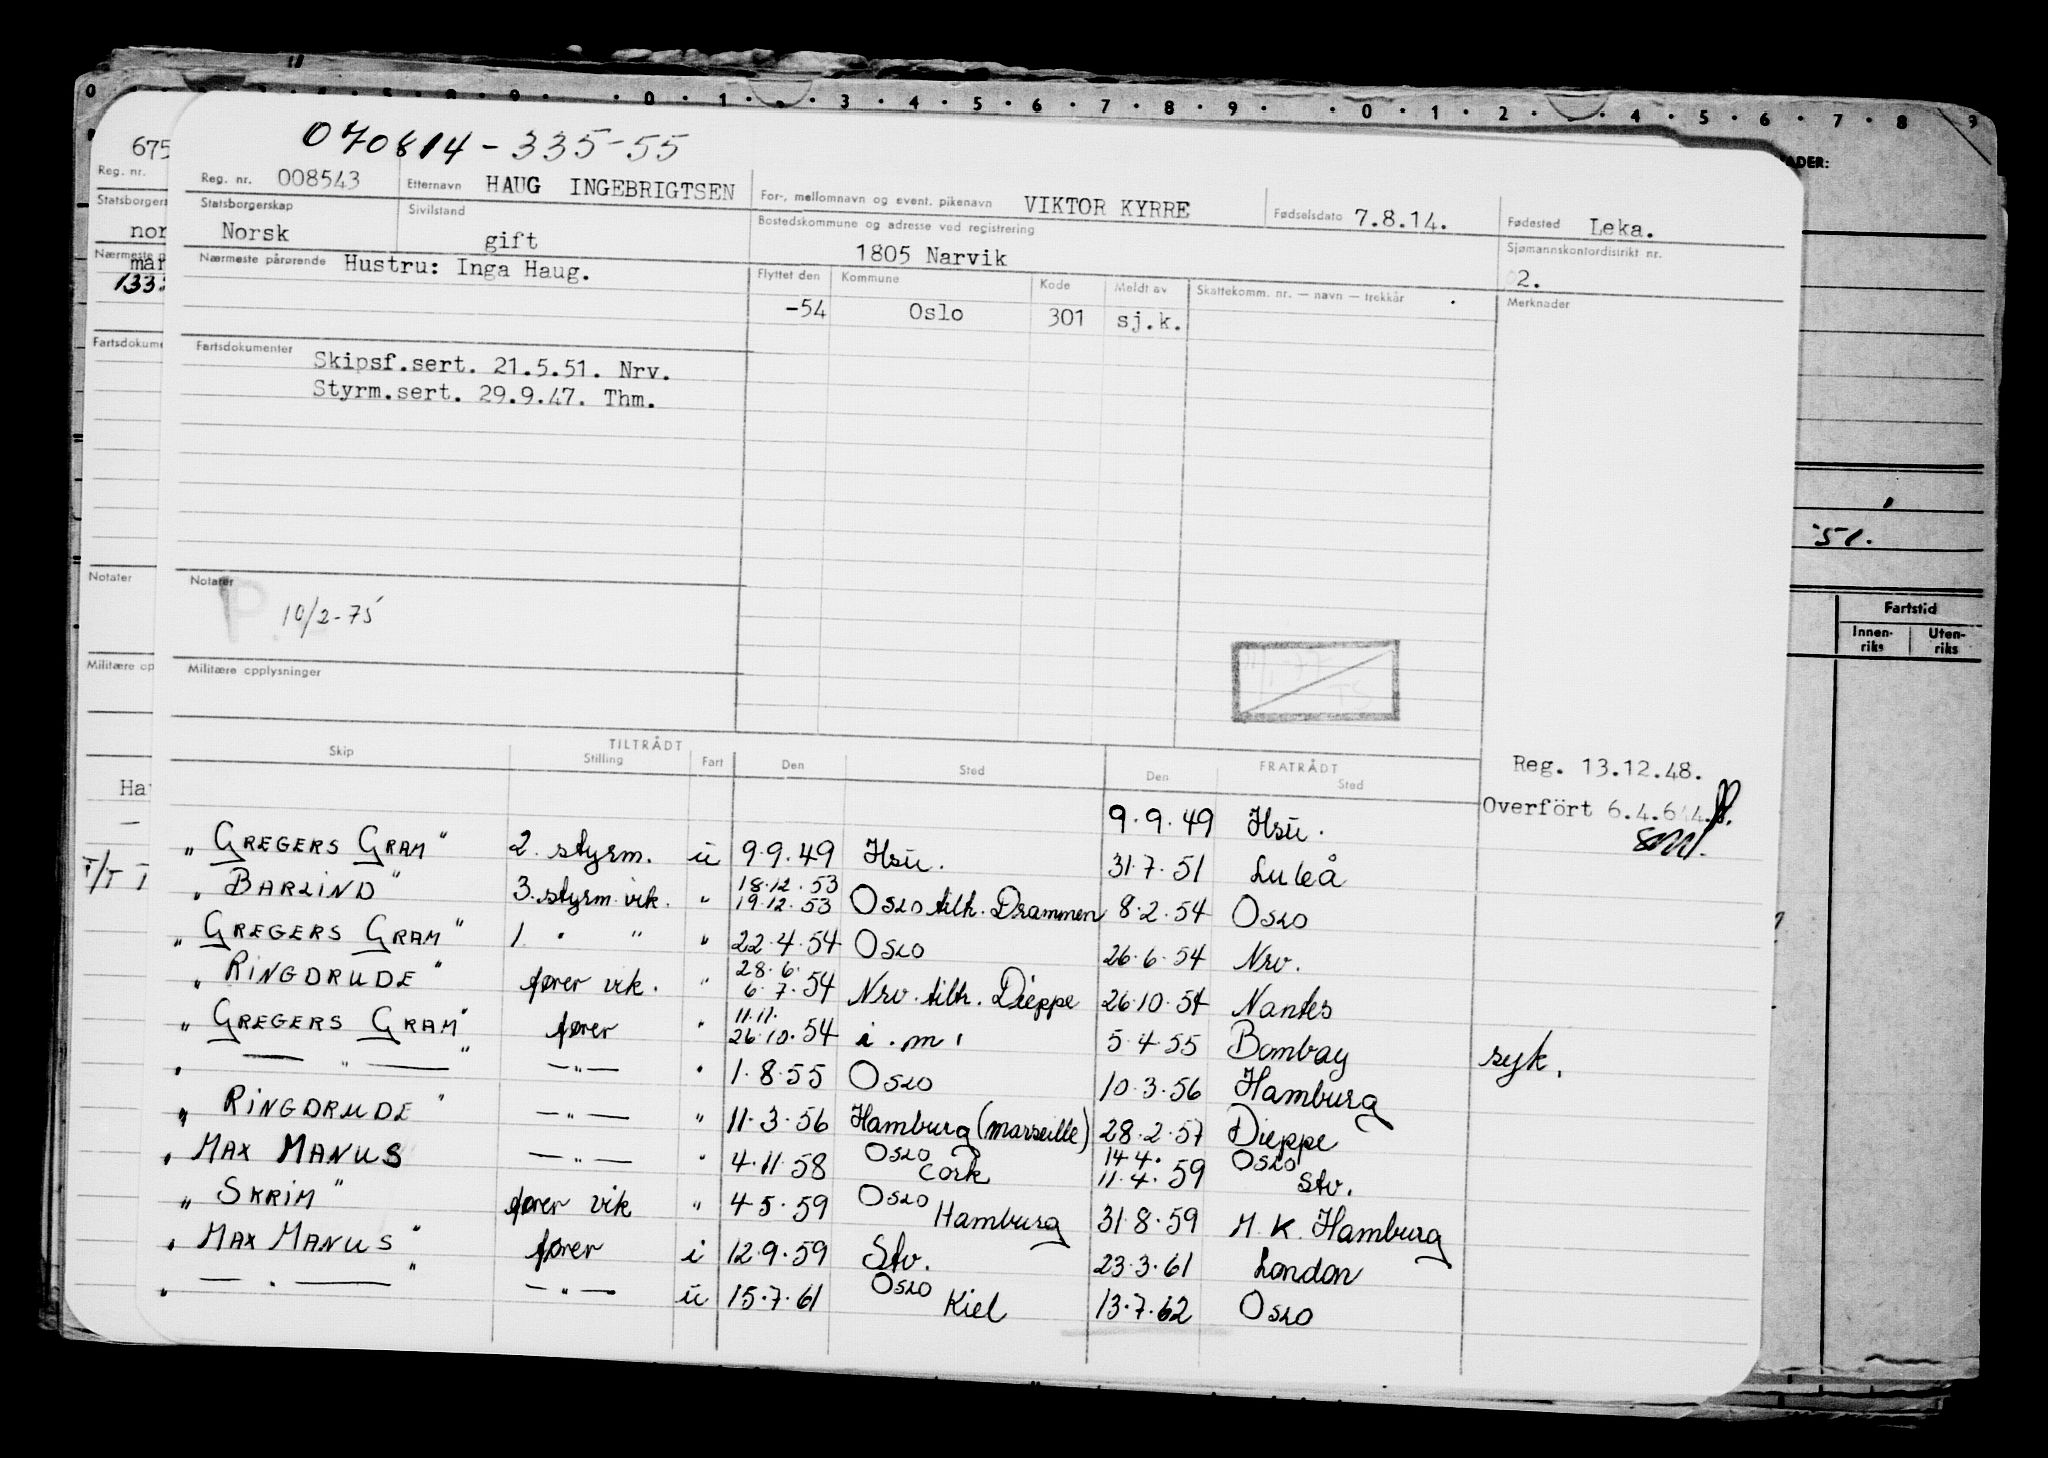 0 1 3 4 5 6 7 8 9 0 1 2 4 5 6 7 8 9
070814-335-55
675
Reg. nr.
Reg. nr. 008543 Etternavn HAUG INGEBRIGTSEN For-, mellomnavn og event. pikenavn VIKTOR KYRRE Fødselsdato 7.8.14. Fødested Leka.
Statsborgerskap Norsk Sivilstand gift Bostedskommune og adresse ved registrering 1805 Narvik Sjømannskontordistrikt nr. 02.
Nærmeste pårørende Hustru: Inga Haug. Flyttet den Kommune Kode Meldt av Skattekomm. nr. — navn — trekkår Merknader
-54 Oslo 301 sj.k.
Fartsdokumenter Skipsf.sert. 21.5.51. Nrv.
Styrm.sert. 29.9.47. Thm.
'51.
Notater
Notater
P.
10/2-75
Fartstid
Innen-riks Uten-riks
Militære opplysninger
TILTRÅDT FRATRÅDT
Skip Stilling Fart Den Sted Den Sted
Reg. 13.12.48.
Overfört 6.4.64.
9.9.49 Hsu.
"GREGERS GRAM" 2. styrm. u 9.9.49 Hsu. 31.7.51 Luleå
"BARLIND" 3. styrm. vik. " 18.12.53 19.12.53 Oslo tilh. Drammen 8.2.54 Oslo
"GREGERS GRAM" 1. " " 22.4.54 Oslo 26.6.54 Nrv.
"RINGDRUDE" fører vik. " 28.6. 6.7.54 Nrv. tilh. Dieppe 26.10.54 Nantes
"GREGERS GRAM" fører " 11.11. 26.10.54 i.m. 5.4.55 Bombay syk.
" — " — " — " — " 1.8.55 Oslo 10.3.56 Hamburg
"RINGDRUDE" — " — " 11.3.56 Hamburg (Marseille) 28.2.57 Dieppe
" MAX MANUS — " — " 4.11.58 Oslo Cork 14.4. 11.4.59 Oslo Stv.
"SKRIM" fører vik " 4.5.59 Oslo Hamburg 31.8.59 M.K. Hamburg
"MAX MANUS" fører i 12.9.59 Stv. 23.3.61 London
" — " — " — " — u 15.7.61 Oslo Kiel 13.7.62 Oslo